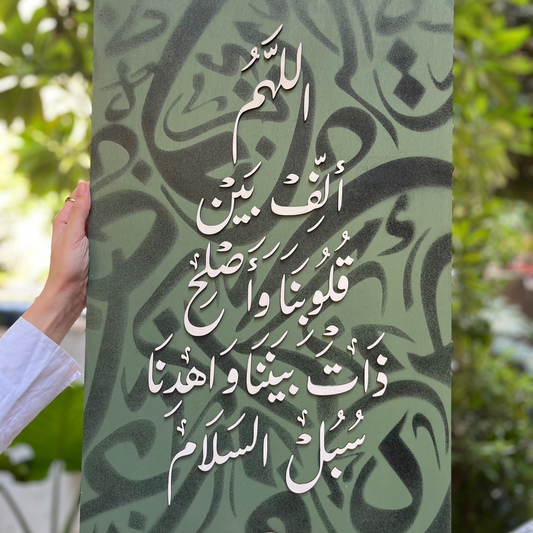 اللَّهُمَّ
أَلِّفْ بَيْنَ
قُلُوبِنَا وَأَصْلِحْ
ذَاتَ بَيْنِنَا وَاهْدِنَا
سُبُلَ السَّلَامِ